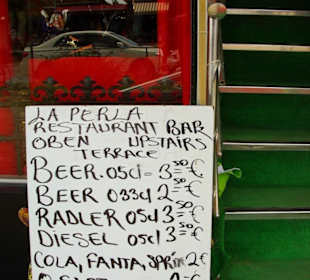 LA PERLA
RESTAURANT BAR
OBEN UPSTAIRS
TERRACE
BEER .05cl = 3 50 €
BEER 033cl 2 50 €
RADLER 05cl 3 50 €
DIESEL 05cl 3 50 €
COLA, FANTA, SPRIT 2 €